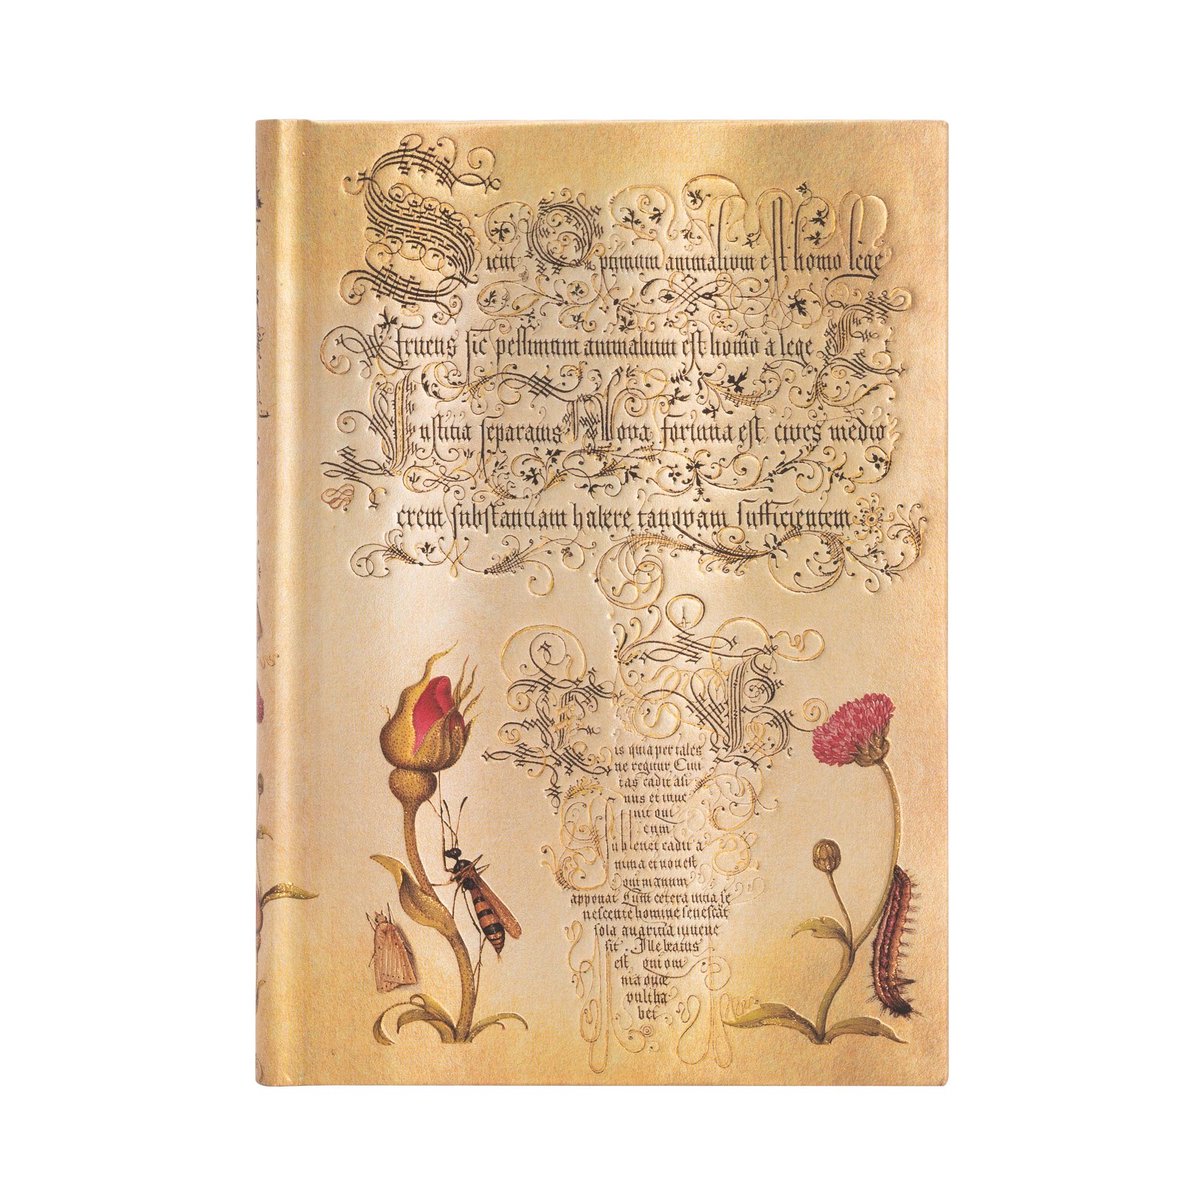 Sicut Optimum animalium est homo lege
fruens sic pessimum animalium est homo a lege E
Iustitia separatus Nova fortuna est cives medio
crem substantiam habere tanquam sufficientem
E
B
is quia per tales
ne regitur Civi
tas cadit asi
nus et inve
nit qui
eum
sublevet cadit a
nima et non est
qui manum
apponat Cum cetera vitia se
nescente homine senescat
sola avaritia iuvene
sit Ille beatus
est qui om
nia que
vult ha
bet